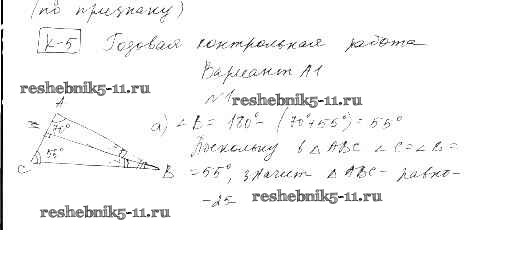 (по признаку)
К-5 Годовая контрольная работа
Вариант А1
reshebnik5-11.ru
№1
reshebnik5-11.ru
A
70°
55°
C
B
а) ∠B = 180° - (70°+55°) = 55°
Поскольку в △ABC ∠C=∠B=
=55°, значит △ABC - равно-
-25
reshebnik5-11.ru
reshebnik5-11.ru